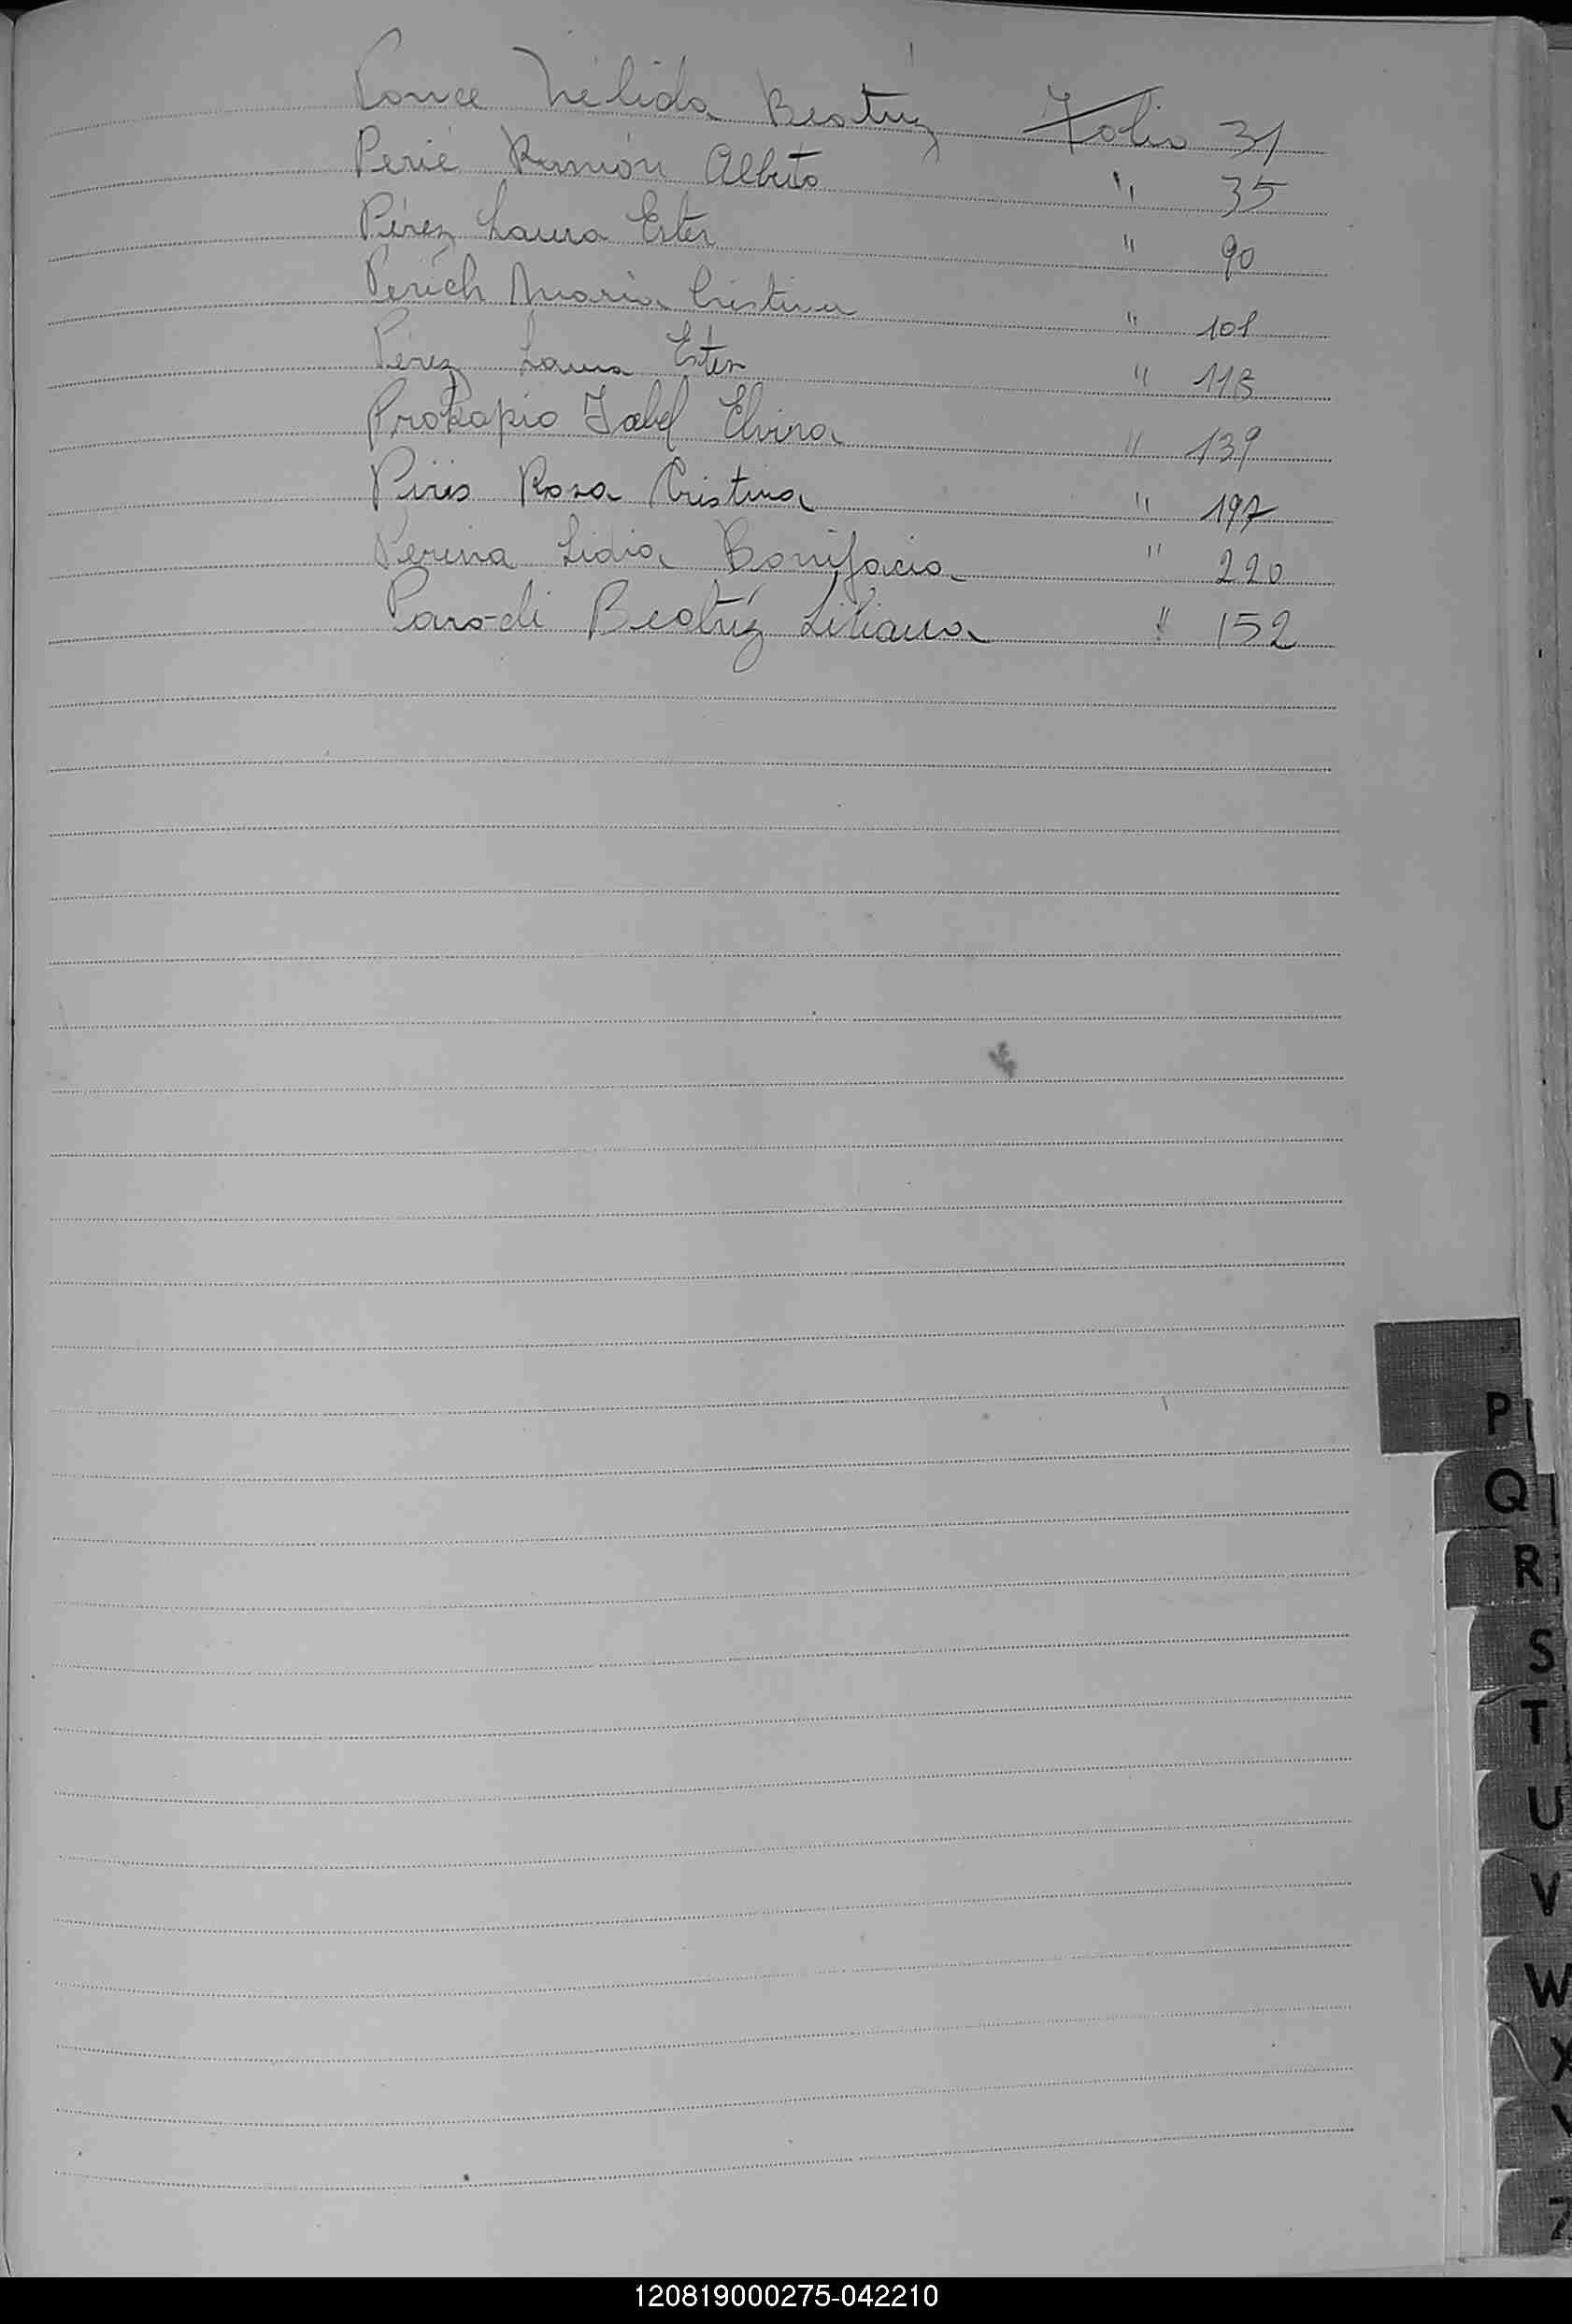 Ponce Nélida Beatríz Folio 31
Perié Ramón Alberto " 35
Pérez Laura Ester " 90
Perich María Cristina " 101
Pérez Laura Ester " 113
Prokapio Isabel Elvira " 139
Piris Rosa Cristina " 197
Perina Lidia Bonifacia " 220
Parodi Beatríz Liliana " 152
P
Q
R
S
T
U
V
W
X
Y
Z
120819000275-042210